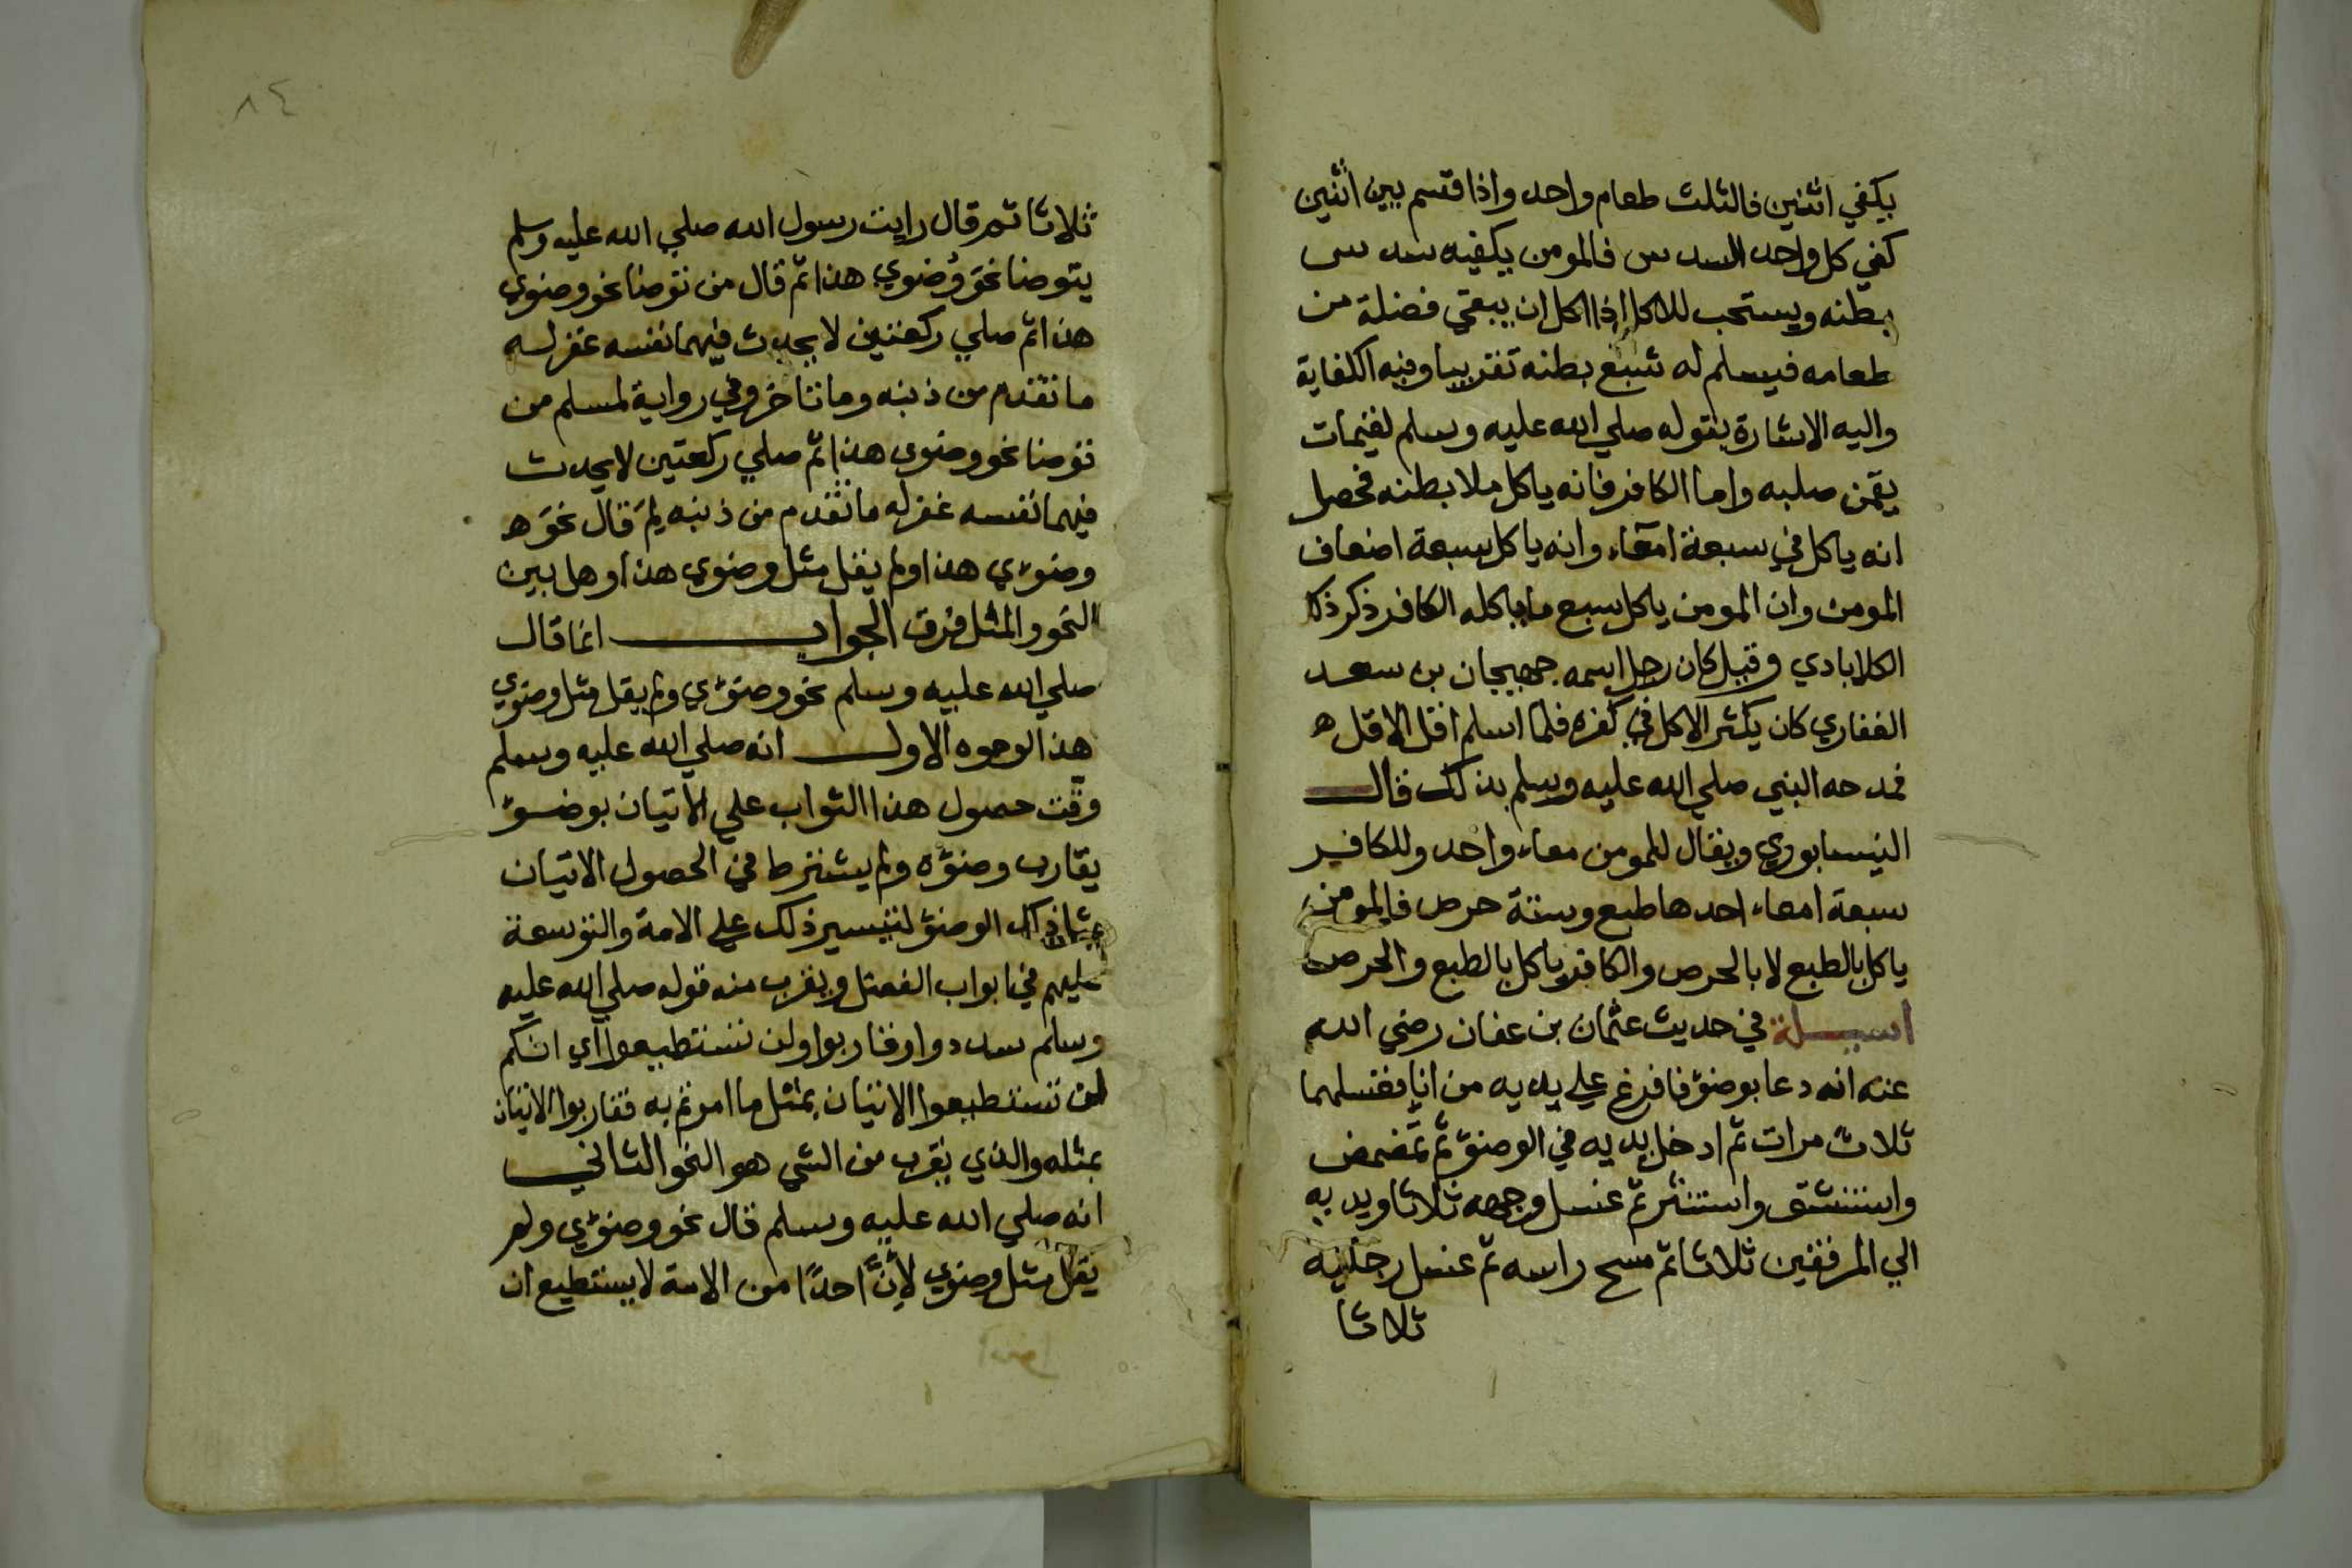 يكفي اثنين فالثلث طعام واحد واذا قسم بين اثنين
كفي كل واحد السدس فالمومن يكفيه سدس
بطنه ويستحب للاكل اذا اكل ان يبقي فضلة من
طعامه فيسلم له شبع بطنه تقريبا وفيه الكفاية
واليه الاشارة بقوله صلي الله عليه وسلم لقيمات
يقمن صلبه واما الكافر فانه ياكل ملا بطنه فحصل
انه ياكل في سبعة امعاء وانه ياكل سبعة اضعاف
المومن وان المومن ياكل سبع ما ياكله الكافر ذكر ذكك
الكلابادي وقيل كان رجل اسمه جهيجان بن سعد
الغفاري كان يكثر الاكل في كفره فلما اسلم اقل الاقل ه
فمدحه النبي صلي الله عليه وسلم بذلك قال
النيسابوري ويقال للمومن معاء واحد وللكافر
سبعة امعاء احدها طبع وستة حرص فالمومن
ياكل بالطبع لا بالحرص والكافر ياكل بالطبع والحرص
اسيلة في حديث عثمان بن عفان رضي الله
عنه انه دعا بوضؤ فافرغ علي يديه من انا فغسلهما
ثلاث مرات ثم ادخل يديه في الوضؤ ثم تمضمض
واستنشق واستنثر ثم غسل وجهه ثلاثا ويديه
الي المرفقين ثلاثا ثم مسح راسه ثم غسل رجليه
ثلاثا
٨٤
ثلاثا ثم قال رايت رسول الله صلي الله عليه وسلم
يتوضا نحو وضوي هذا ثم قال من توضا نحو وضوي
هذا ثم صلي ركعتين لا يحدث فيهما نفسه غفر له
ما تقدم من ذنبه وما تاخر وفي رواية لمسلم من
توضا نحو وضوي هذا ثم صلي ركعتين لا يحدث
فيهما نفسه غفر له ما تقدم من ذنبه لم قال نحو ه
وضوئي هذا ولم يقل مثل وضوي هذا وهل بين
النحو والمثل فرق الجواب انما قال
صلي الله عليه وسلم نحو وضوئي ولم يقل مثل وضوي
هذا لوجوه الاول انه صلي الله عليه وسلم
وقت حصول هذا الثواب علي الاتيان بوضؤ
يقارب وضؤه ولم يشترط في الحصول الاتيان
بمثل ذلك الوضؤ لتيسير ذلك علي الامة والتوسعة
عليهم في ابواب الفضل ويقرب منه قوله صلي الله عليه
وسلم سددوا وقاربوا ولن تستطيعوا اي انكم
لن تستطيعوا الاتيان بمثل ما امرتم به فقاربوا الاتيان
بمثله والذي يقرب من الشي هو النحو الثاني
انه صلي الله عليه وسلم قال نحو وضوئي ولم
يقل مثل وضوي لأن احدًا من الامة لا يستطيع ان